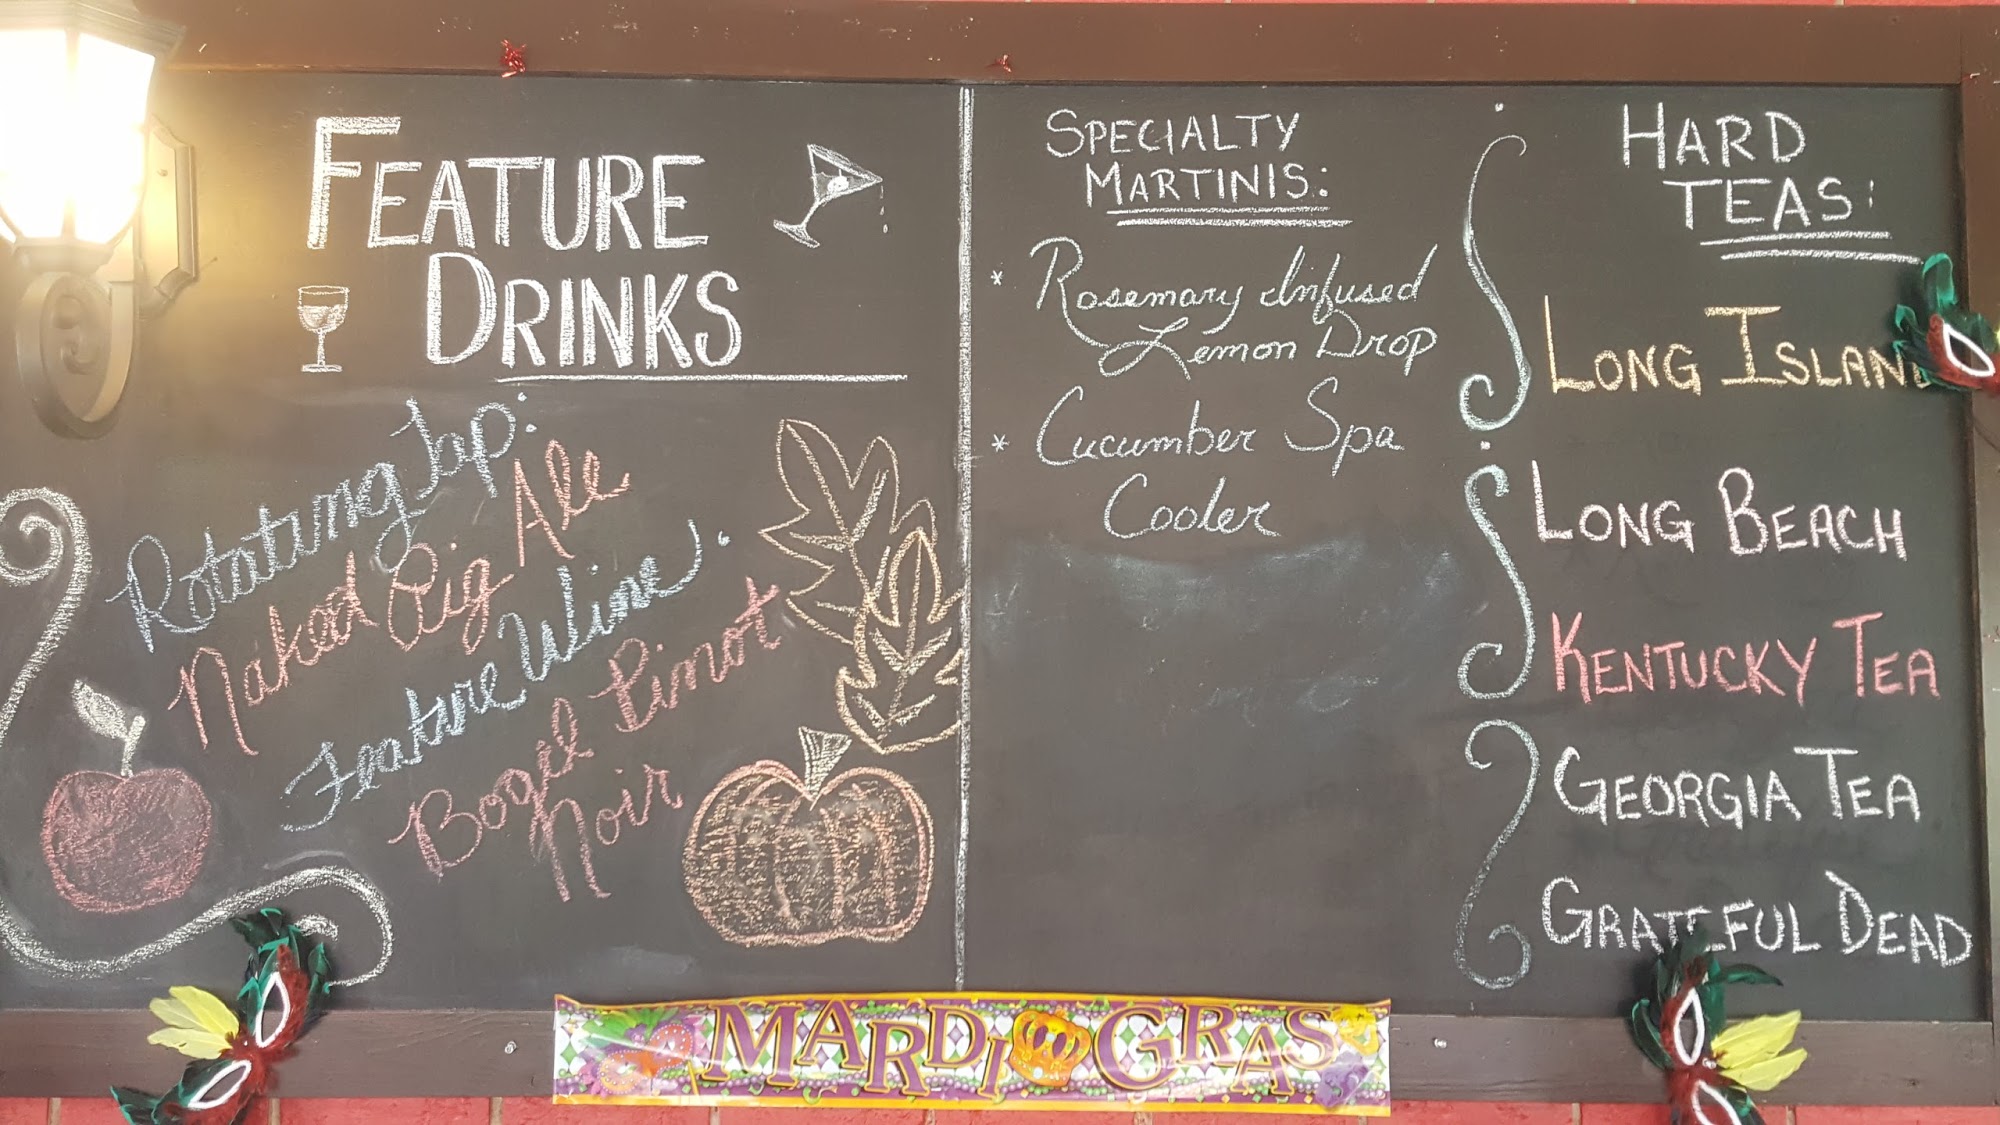 FEATURE
DRINKS
Rotating Tap:
Naked Pig Ale
Feature Wine:
Bogel Pinot
Noir
SPECIALTY
MARTINIS:
* Rosemary Infused
Lemon Drop
* Cucumber Spa
Cooler
HARD
TEAS:
LONG ISLAND
LONG BEACH
KENTUCKY TEA
GEORGIA TEA
GRATEFUL DEAD
MARDI GRAS